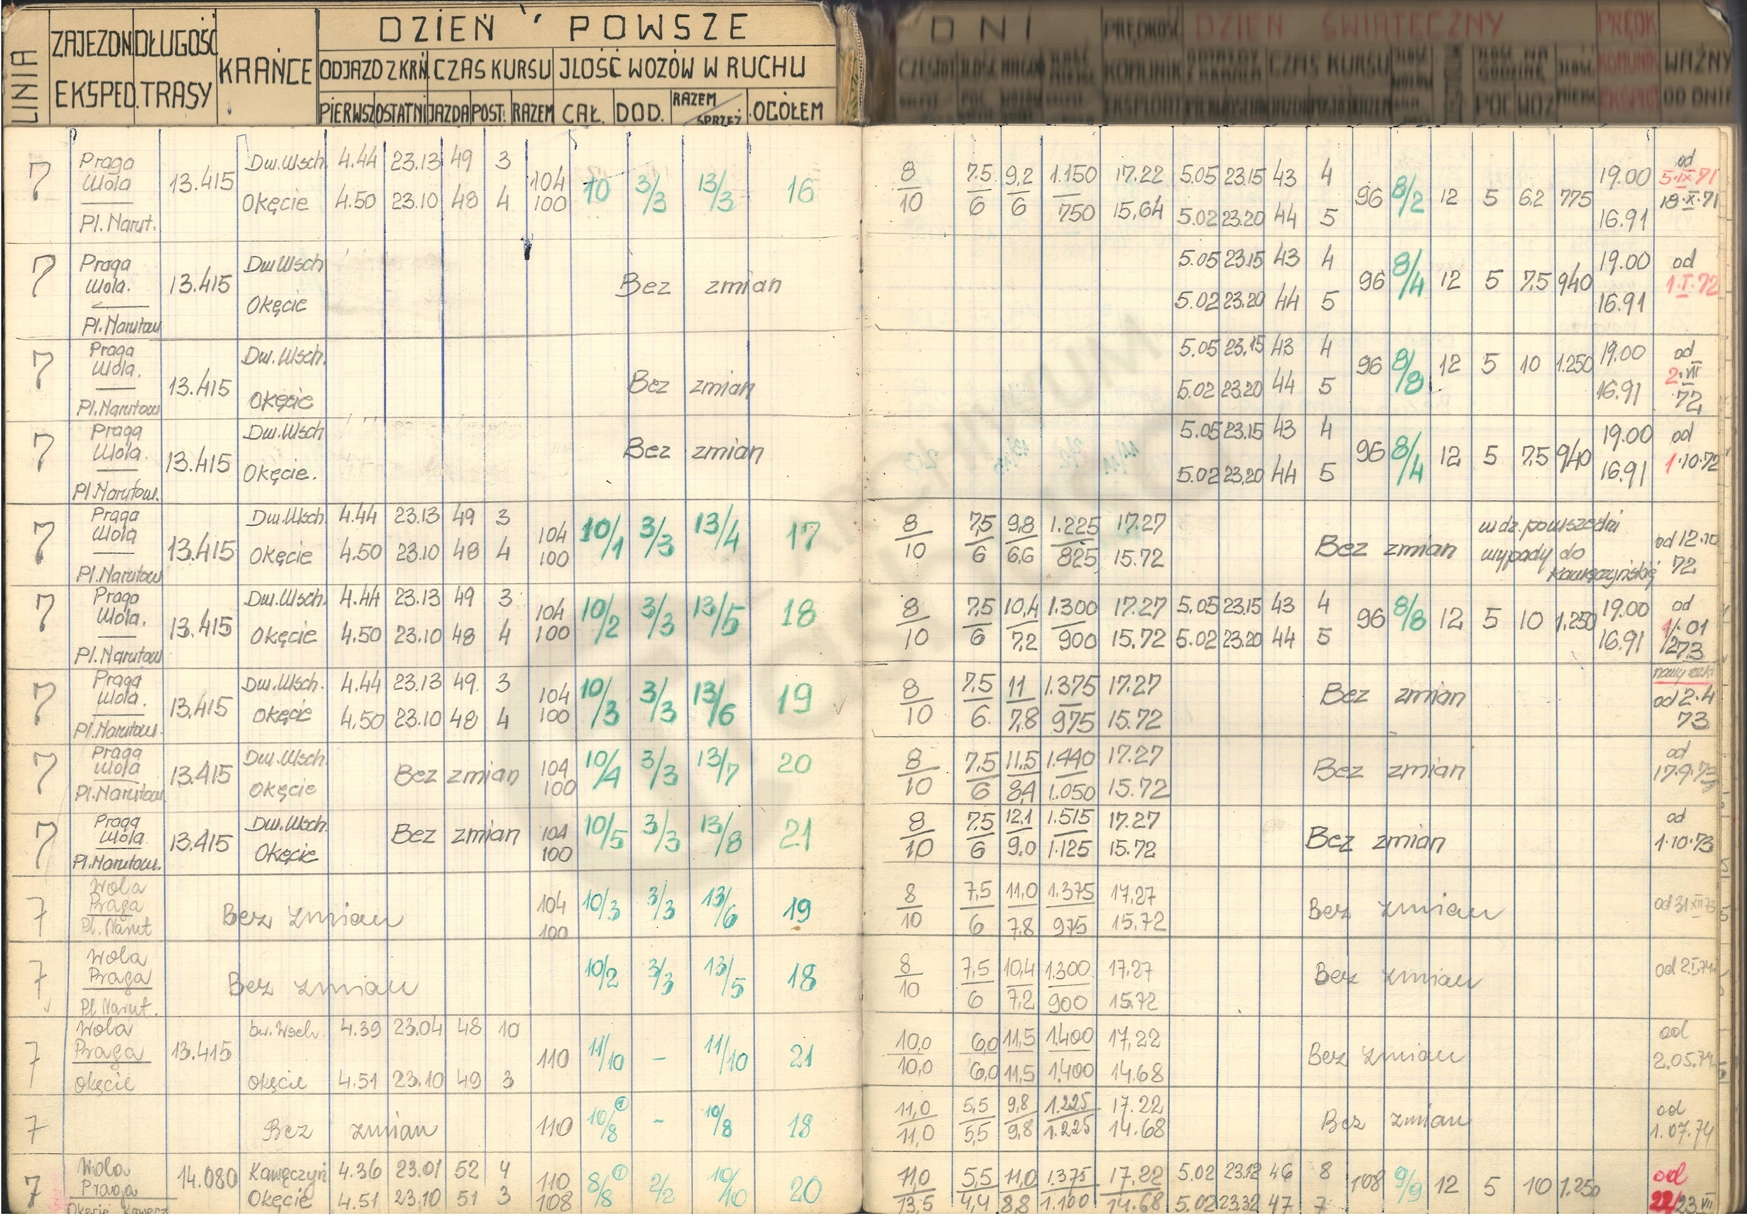 LINIA ZAJEZDN. EKSPED. DŁUGOŚĆ TRASY KRAŃCE DZIEŃ POWSZE DNI PRĘDKOŚĆ DZIEŃ ŚWIĄTECZNY PRĘDK
ODJAZD Z KRŃ. CZAS KURSU JLOŚĆ WOZÓW W RUCHU KOMUNIK CZAS KURSU KOMUNIK WAŻNY
PIERWSZ OSTATNI JAZDA POST. RAZEM CAŁ. DOD. RAZEM SPRZĘŻ. OGÓŁEM EKSPLOAT OD DNIA
7 Praga Wola Pl. Narut. 13.415 Dw.Wsch. 4.44 23.13 49 3 104 10 3/3 13/3 16 8 7.5 9,2 1.150 17.22 5.05 23.15 43 4 96 8/2 12 5 6.2 775 19.00 od 5.IX.71
Okęcie 4.50 23.10 48 4 100 10 6 6 750 15,64 5.02 23.20 44 5 16.91 18.X.71
7 Praga Wola. Pl.Narutow 13.415 Dw.Wsch Bez zmian 5.05 23.15 43 4 96 8/4 12 5 7,5 940 19.00 od
Okęcie 5.02 23.20 44 5 16.91 1.I.72
7 Praga Wola. Pl.Narutow 13.415 Dw.Wsch. Bez zmian 5.05 23.15 43 4 96 8/8 12 5 10 1.250 19.00 od
Okęcie 5.02 23.20 44 5 16.91 2.VII 72
7 Praga Wola. Pl.Narutow. 13.415 Dw.Wsch Bez zmian 5.05 23.15 43 4 96 8/4 12 5 7,5 940 19.00 od
Okęcie. 5.02 23.20 44 5 16.91 1.10.72
7 Praga Wola Pl.Narutow 13.415 Dw.Wsch. 4.44 23.13 49 3 104 10/1 3/3 13/4 17 8 7,5 9,8 1.225 17.27 Bez zmian w dz. powszedni wypady do Kawęczyńskiej od 12.10
Okęcie 4.50 23.10 48 4 100 10 6 6,6 825 15.72 72
7 Praga Wola. Pl.Narutow 13.415 Dw.Wsch. 4.44 23.13 49 3 104 10/2 3/3 13/5 18 8 7,5 10,4 1.300 17.27 5.05 23.15 43 4 96 8/8 12 5 10 1.250 19.00 od
Okęcie 4.50 23.10 48 4 100 10 6 7,2 900 15.72 5.02 23.20 44 5 16.91
7 Praga Wola. Pl.Narutow. 13.415 Dw.Wsch. 4.44 23.13 49 3 104 10/3 3/3 13/6 19 8 7,5 11 1.375 17.27 Bez zmian od 2.4
Okęcie 4.50 23.10 48 4 100 10 6 7,8 975 15.72 73
7 Praga Wola Pl.Narutow 13.415 Dw.Wsch. Bez zmian 104 10/4 3/3 13/7 20 8 7,5 11,5 1.440 17.27 Bez zmian od
Okęcie 100 10 6 8,4 1.050 15.72 17.9.73
7 Praga Wola Pl.Narutow. 13.415 Dw.Wsch. Bez zmian 104 10/5 3/3 13/8 21 8 7,5 12,1 1.515 17.27 Bez zmian od
Okęcie 100 10 6 9.0 1.125 15.72 1.10.73
7 Wola Praga Pl. Narut Bez zmian 104 10/3 3/3 13/6 19 8 7,5 11,0 1.375 17,27 Bez zmian od 31 XII 73
100 10 6 7,8 975 15,72
7 Wola Praga Pl. Narut. Bez zmian 10/2 3/3 13/5 18 8 7,5 10,4 1.300 17,27 Bez zmian od 2.I.74
10 6 7,2 900 15.72
7 Wola Praga Okęcie 13.415 Dw. Wsch. 4.39 23.04 48 10 110 11/10 - 11/10 21 10,0 6,0 11,5 1.400 17,22 Bez zmian od
Okęcie 4.51 23.10 49 3 10,0 6,0 11,5 1.400 14.68 2.05.74
7 Bez zmian 110 10/8 - 10/8 18 11,0 5,5 9,8 1.225 17.22 Bez zmian od
11,0 5,5 9,8 1.225 14.68 1.07.74
7 Wola Praga 14.080 Kawęczyń 4.36 23.01 52 4 110 8/8 2/2 10/10 20 11,0 5,5 11,0 1.375 17,22 5.02 23.12 46 8 108 9/9 12 5 10 1.250 od
Okęcie Kawęcz Okęcie 4.51 23.10 51 3 108 13,5 4,4 8,8 1.100 14.68 5.02 23.32 47 7 22/23.VII